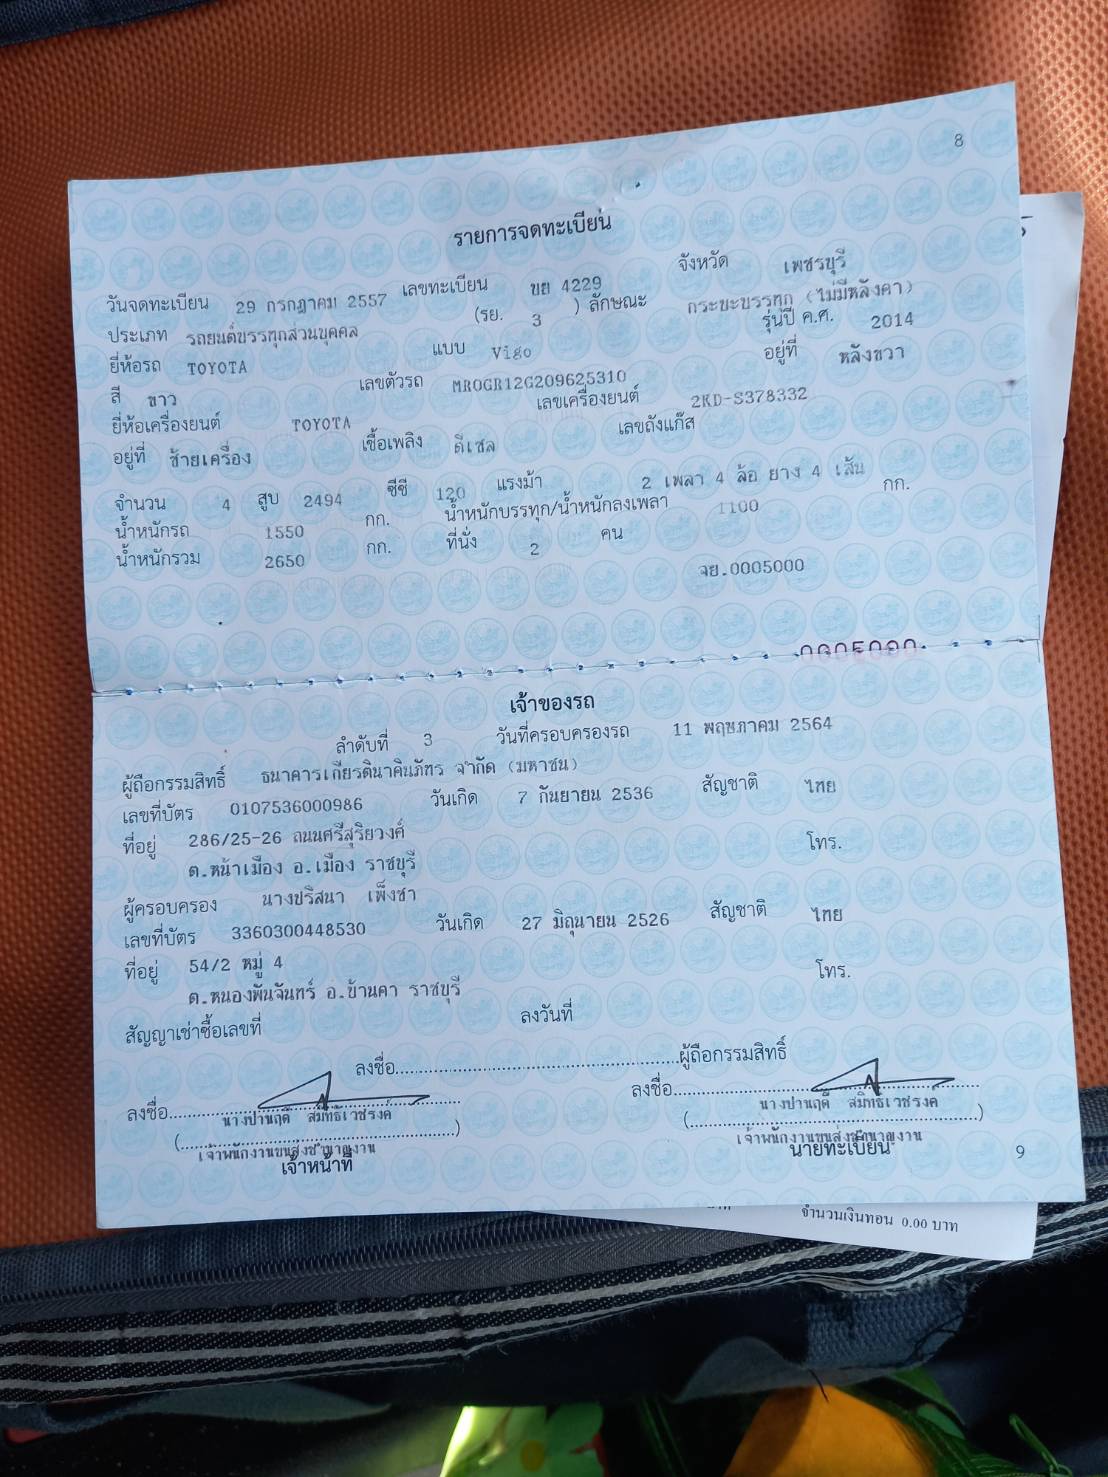 8
รายการจดทะเบียน
วันจดทะเบียน 29 กรกฎาคม 2557 เลขทะเบียน ขย 4229 จังหวัด เพชรบุรี
ประเภท รถยนต์บรรทุกส่วนบุคคล (รย. 3 ) ลักษณะ กระบะบรรทุก (ไม่มีหลังคา)
ยี่ห้อรถ TOYOTA แบบ Vigo รุ่นปี ค.ศ. 2014
สี ขาว เลขตัวรถ MR0GR12G209625310 อยู่ที่ หลังขวา
ยี่ห้อเครื่องยนต์ TOYOTA เลขเครื่องยนต์ 2KD-S378332
อยู่ที่ ซ้ายเครื่อง เชื้อเพลิง ดีเซล เลขถังแก๊ส
จำนวน 4 สูบ 2494 ซีซี 120 แรงม้า 2 เพลา 4 ล้อ ยาง 4 เส้น
น้ำหนักรถ 1550 กก. น้ำหนักบรรทุก/น้ำหนักลงเพลา 1100 กก.
น้ำหนักรวม 2650 กก. ที่นั่ง 2 คน
จย.0005000
0005000
เจ้าของรถ
ลำดับที่ 3 วันที่ครอบครองรถ 11 พฤษภาคม 2564
ผู้ถือกรรมสิทธิ์ ธนาคารเกียรตินาคินภัทร จำกัด (มหาชน)
เลขที่บัตร 0107536000986 วันเกิด 7 กันยายน 2536 สัญชาติ ไทย
ที่อยู่ 286/25-26 ถนนศรีสุริยวงศ์
ต.หน้าเมือง อ.เมือง ราชบุรี โทร.
ผู้ครอบครอง นางปริสนา เพ็งชา
เลขที่บัตร 3360300448530 วันเกิด 27 มิถุนายน 2526 สัญชาติ ไทย
ที่อยู่ 54/2 หมู่ 4
ต.หนองพันจันทร์ อ.บ้านคา ราชบุรี โทร.
สัญญาเช่าซื้อเลขที่ ลงวันที่
ลงชื่อ ผู้ถือกรรมสิทธิ์
ลงชื่อ ลงชื่อ
นางปานฤดี สมิทธิเวชรงค์ นางปานฤดี สมิทธิเวชรงค์
( ) ( )
เจ้าพนักงานขนส่งชำนาญงาน เจ้าพนักงานขนส่งชำนาญงาน
เจ้าหน้าที่ นายทะเบียน
9
จำนวนเงินทอน 0.00 บาท